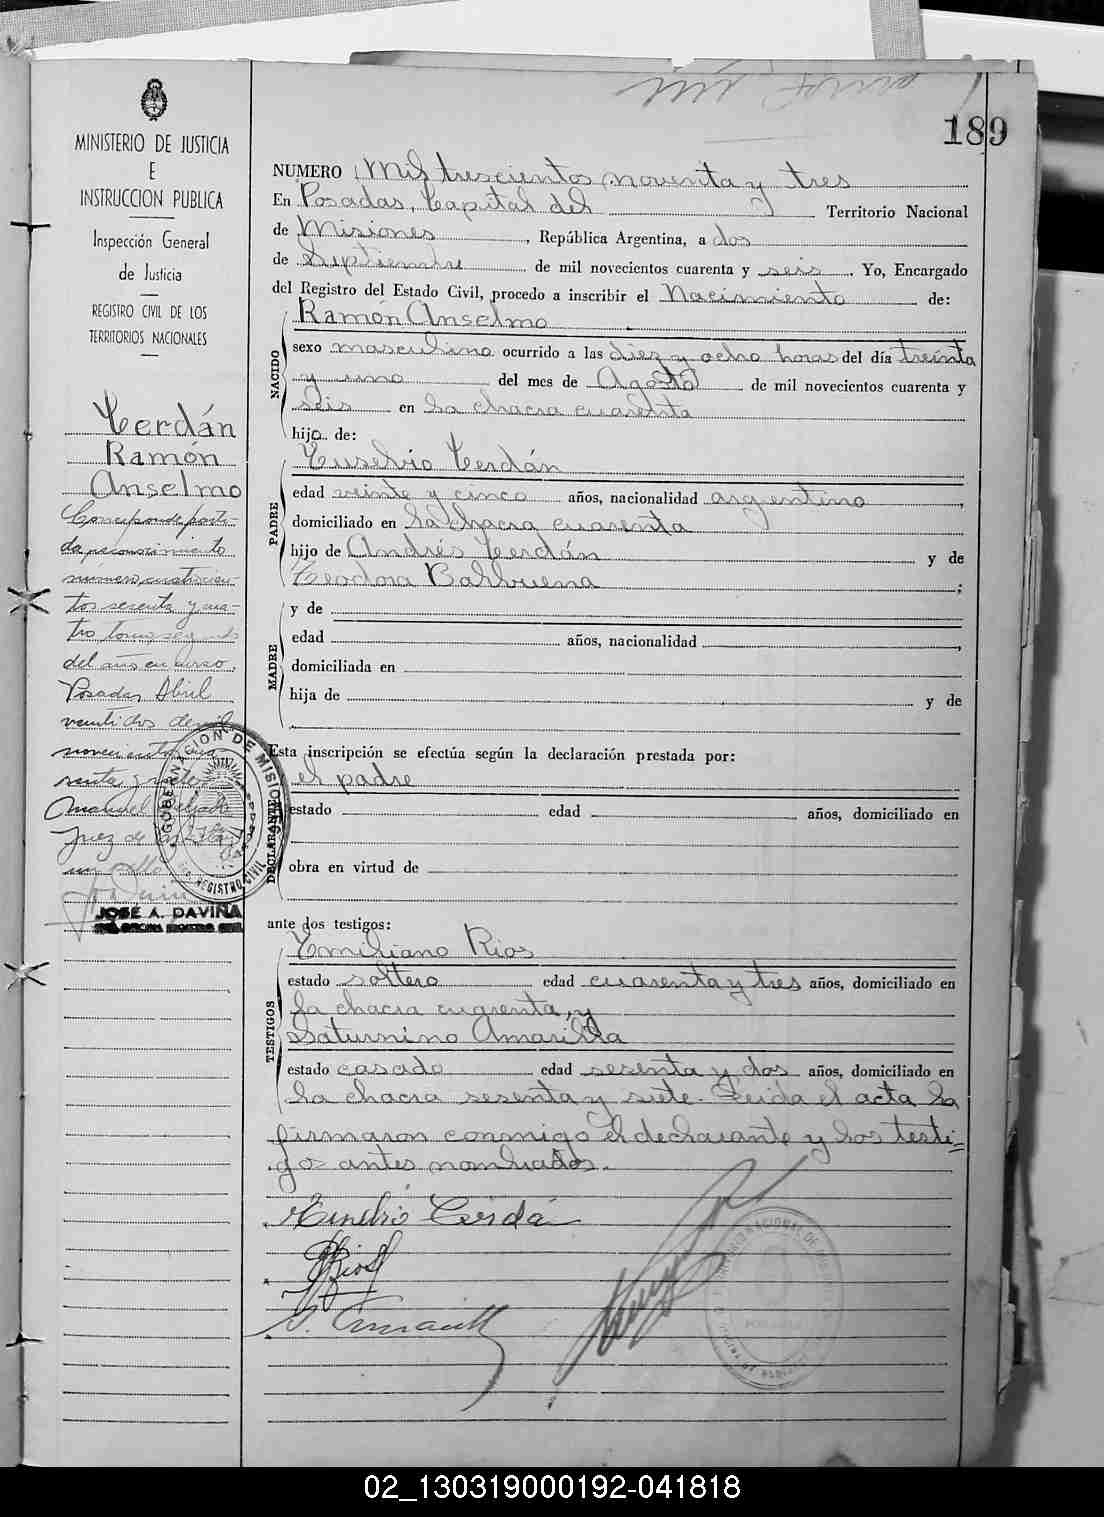 189
MINISTERIO DE JUSTICIA
E
INSTRUCCION PUBLICA
Inspección General
de Justicia
REGISTRO CIVIL DE LOS
TERRITORIOS NACIONALES
Cerdán
Ramón
Anselmo
Corresponde parti-
da reconocimiento
número cuatrocien-
tos sesenta y cua-
tro tomo segundo
del año en curso.
Posadas, Abril
veintidos de mil
novecientos cua-
renta y siete
Manuel
Juez de
un sello
JOSÉ A. DAVIÑA
GOBERNACION DE MISIONES
REGISTRO CIVIL
NUMERO Mil trescientos noventa y tres
En Posadas, Capital del Territorio Nacional
de Misiones, República Argentina, a dos
de Septiembre de mil novecientos cuarenta y seis. Yo, Encargado
del Registro del Estado Civil, procedo a inscribir el Nacimiento de:
NACIDO
Ramón Anselmo
sexo masculino ocurrido a las diez y ocho horas del día treinta
y uno del mes de Agosto de mil novecientos cuarenta y
seis en la chacra cuarenta
hijo de:
PADRE
Eusebio Cerdán
edad veinte y cinco años, nacionalidad argentino,
domiciliado en la chacra cuarenta
hijo de Andrés Cerdán y de
Teodora Balbuena;
MADRE
y de
edad años, nacionalidad,
domiciliada en
hija de y de
Esta inscripción se efectúa según la declaración prestada por:
DECLARANTE
el padre
estado edad años, domiciliado en
obra en virtud de
ante dos testigos:
TESTIGOS
Emiliano Rios
estado soltero edad cuarenta y tres años, domiciliado en
la chacra cuarenta, y
Saturnino Amarilla
estado casado edad sesenta y dos años, domiciliado en
la chacra sesenta y siete. Leida el acta la
firmaron conmigo el declarante y los testi=
gos antes nombrados.
Eusebio Cerdá
Rios
02_130319000192-041818